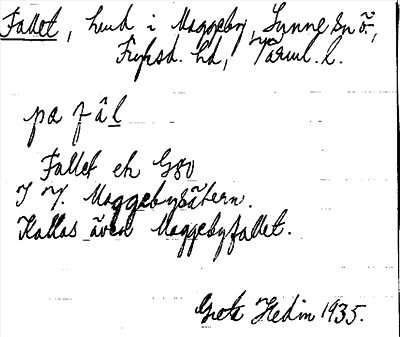 Fallet, hmd i Maggeby, Sunne sn ö.,
Fryksd. hd, Värml. l.
pa fâl
Fallet ek G80
I Y. Maggebysätern.
Kallas även Maggebyfallet.
Greta Hedin 1935.